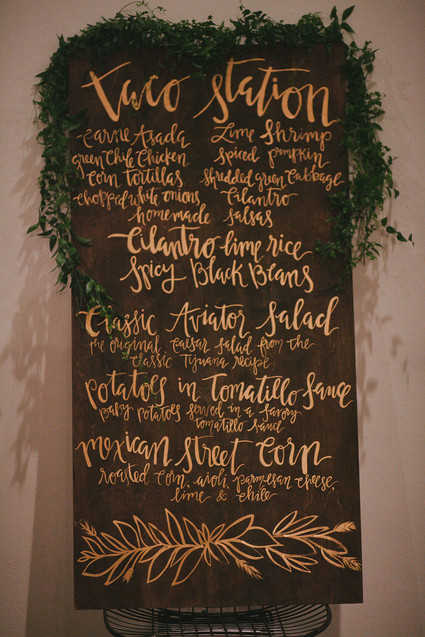 taco station
Carne Asada Lime Shrimp
green Chile Chicken spiced pumpkin
Corn tortillas Shredded green Cabbage
chopped white onions Cilantro
homemade salsas
Cilantro lime rice
Spicy Black Beans
Classic Aviator Salad
the original Caesar Salad from the
Classic Tijuana recipe
potatoes in Tomatillo Sauce
baby potatoes served in a savory
tomatillo sauce
mexican street corn
roasted corn, aioli, parmesan cheese,
lime & chile